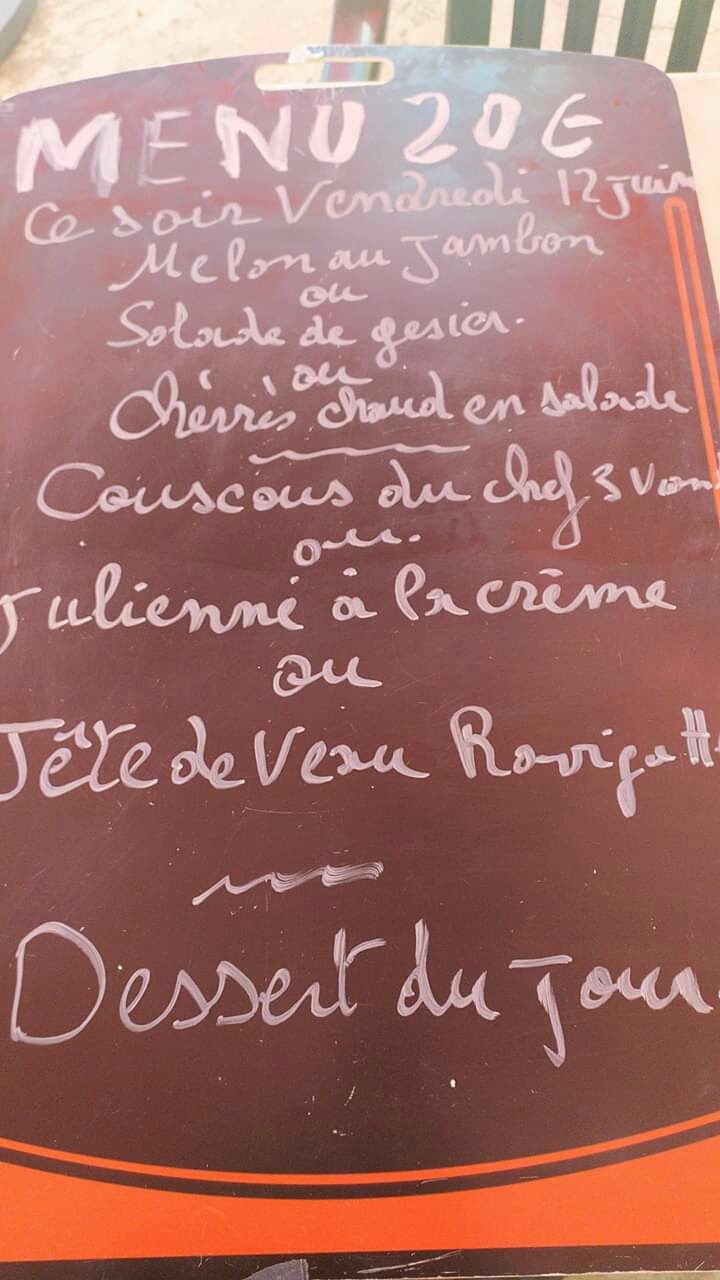 MENU 20€
Ce soir Vendredi 12 juin
Melon au Jambon
ou
Salade de gesier.
ou
Chèvres chaud en salade
Couscous du chef 3 vian
ou.
Julienne à la crème
ou
Tête de Veau Ravigott
Dessert du jour.